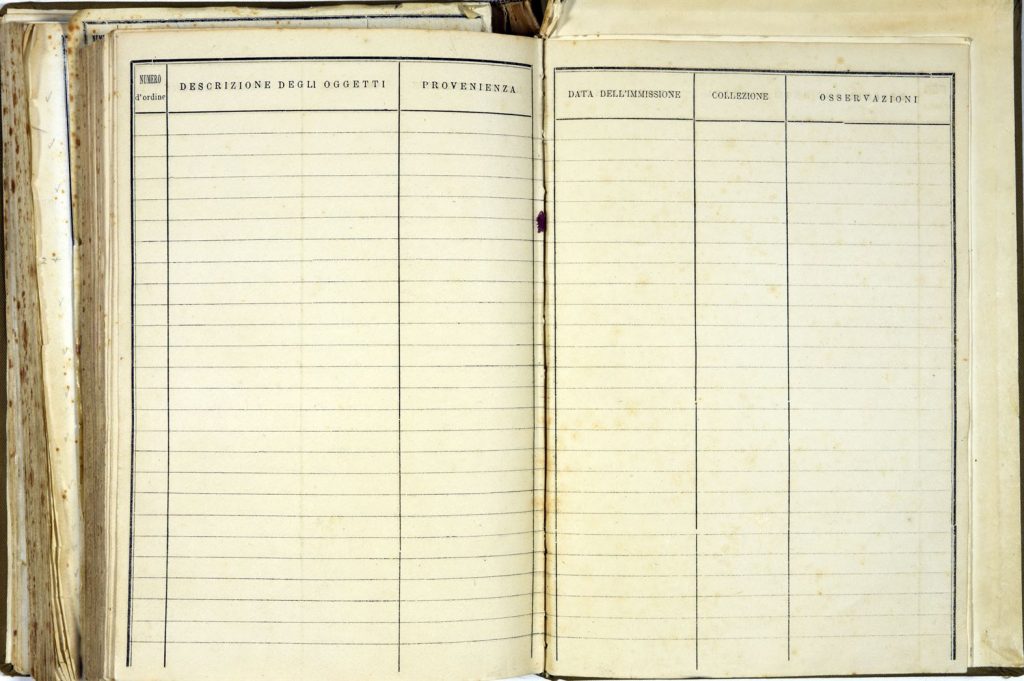 NUMERO
d'ordine
DESCRIZIONE DEGLI OGGETTI
PROVENIENZA
DATA DELL'IMMISSIONE
COLLEZIONE
OSSERVAZIONI